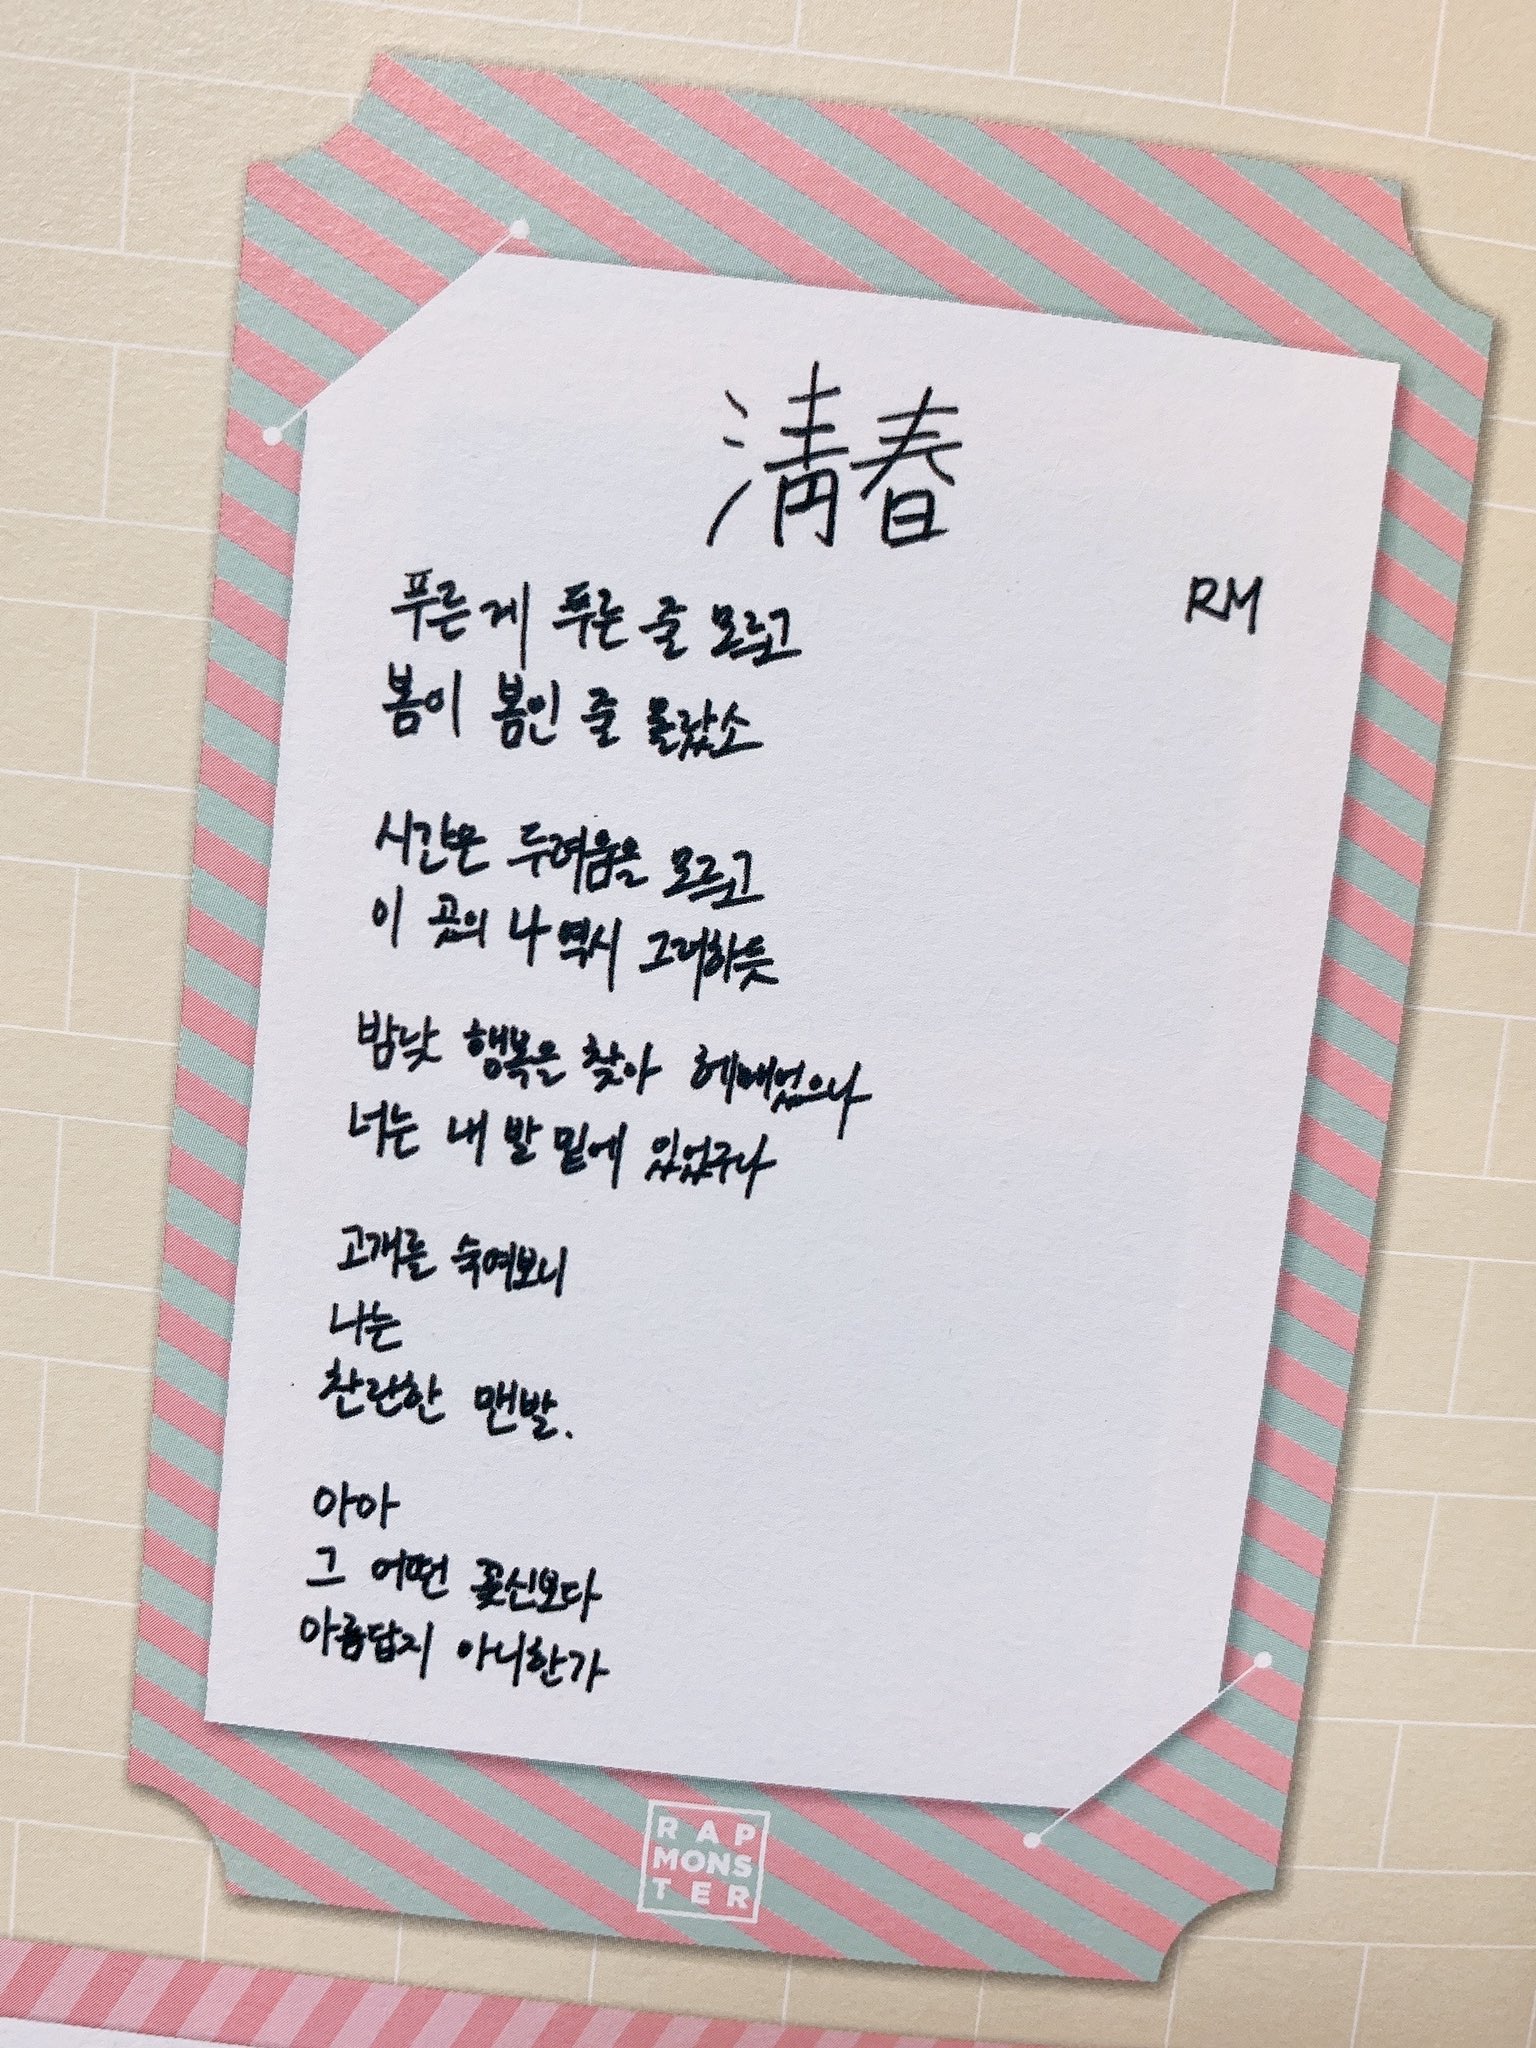 淸春
RM
푸른 게 푸른 줄 모르고
봄이 봄인 줄 몰랐소
시간은 두려움을 모르고
이 곳의 나 역시 그러하듯
밤낮 행복을 찾아 헤매었으나
너는 내 발 밑에 있었구나
고개를 숙여보니
나는
찬란한 맨발.
아아
그 어떤 꽃신보다
아름답지 아니한가
RAP
MONS
TER